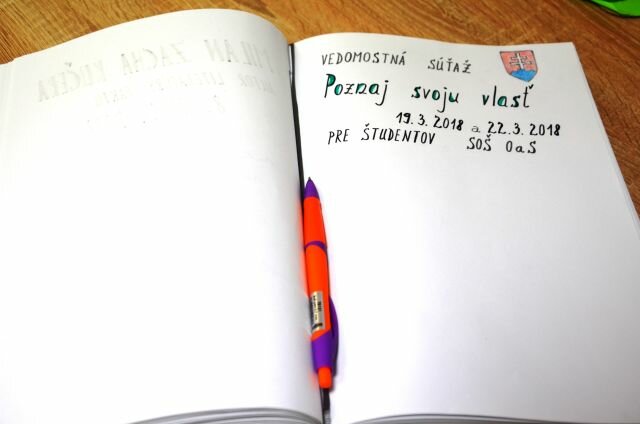 VEDOMOSTNÁ SÚŤAŽ
Poznaj svoju vlasť
19.3.2018 a 22.3.2018
PRE ŠTUDENTOV SOŠ OaS
MILAN ZACHA KUČERA